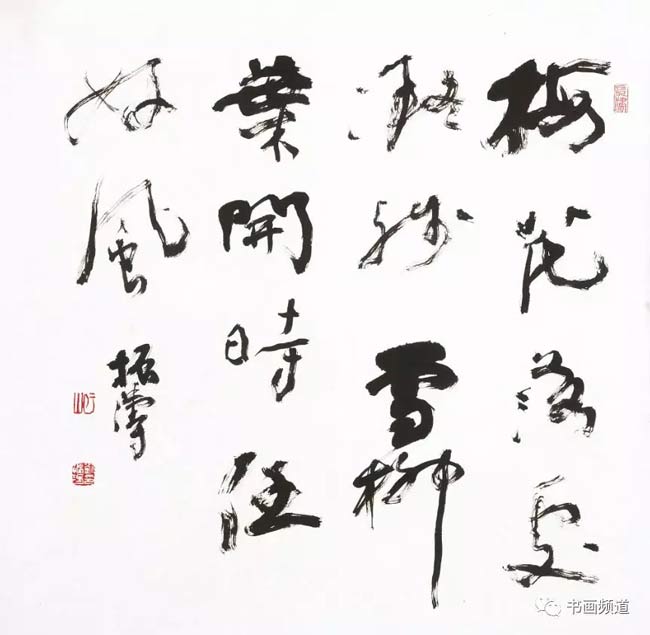 梅花落處
疑殘雪柳
葉開時任
好風
振濤
书画频道